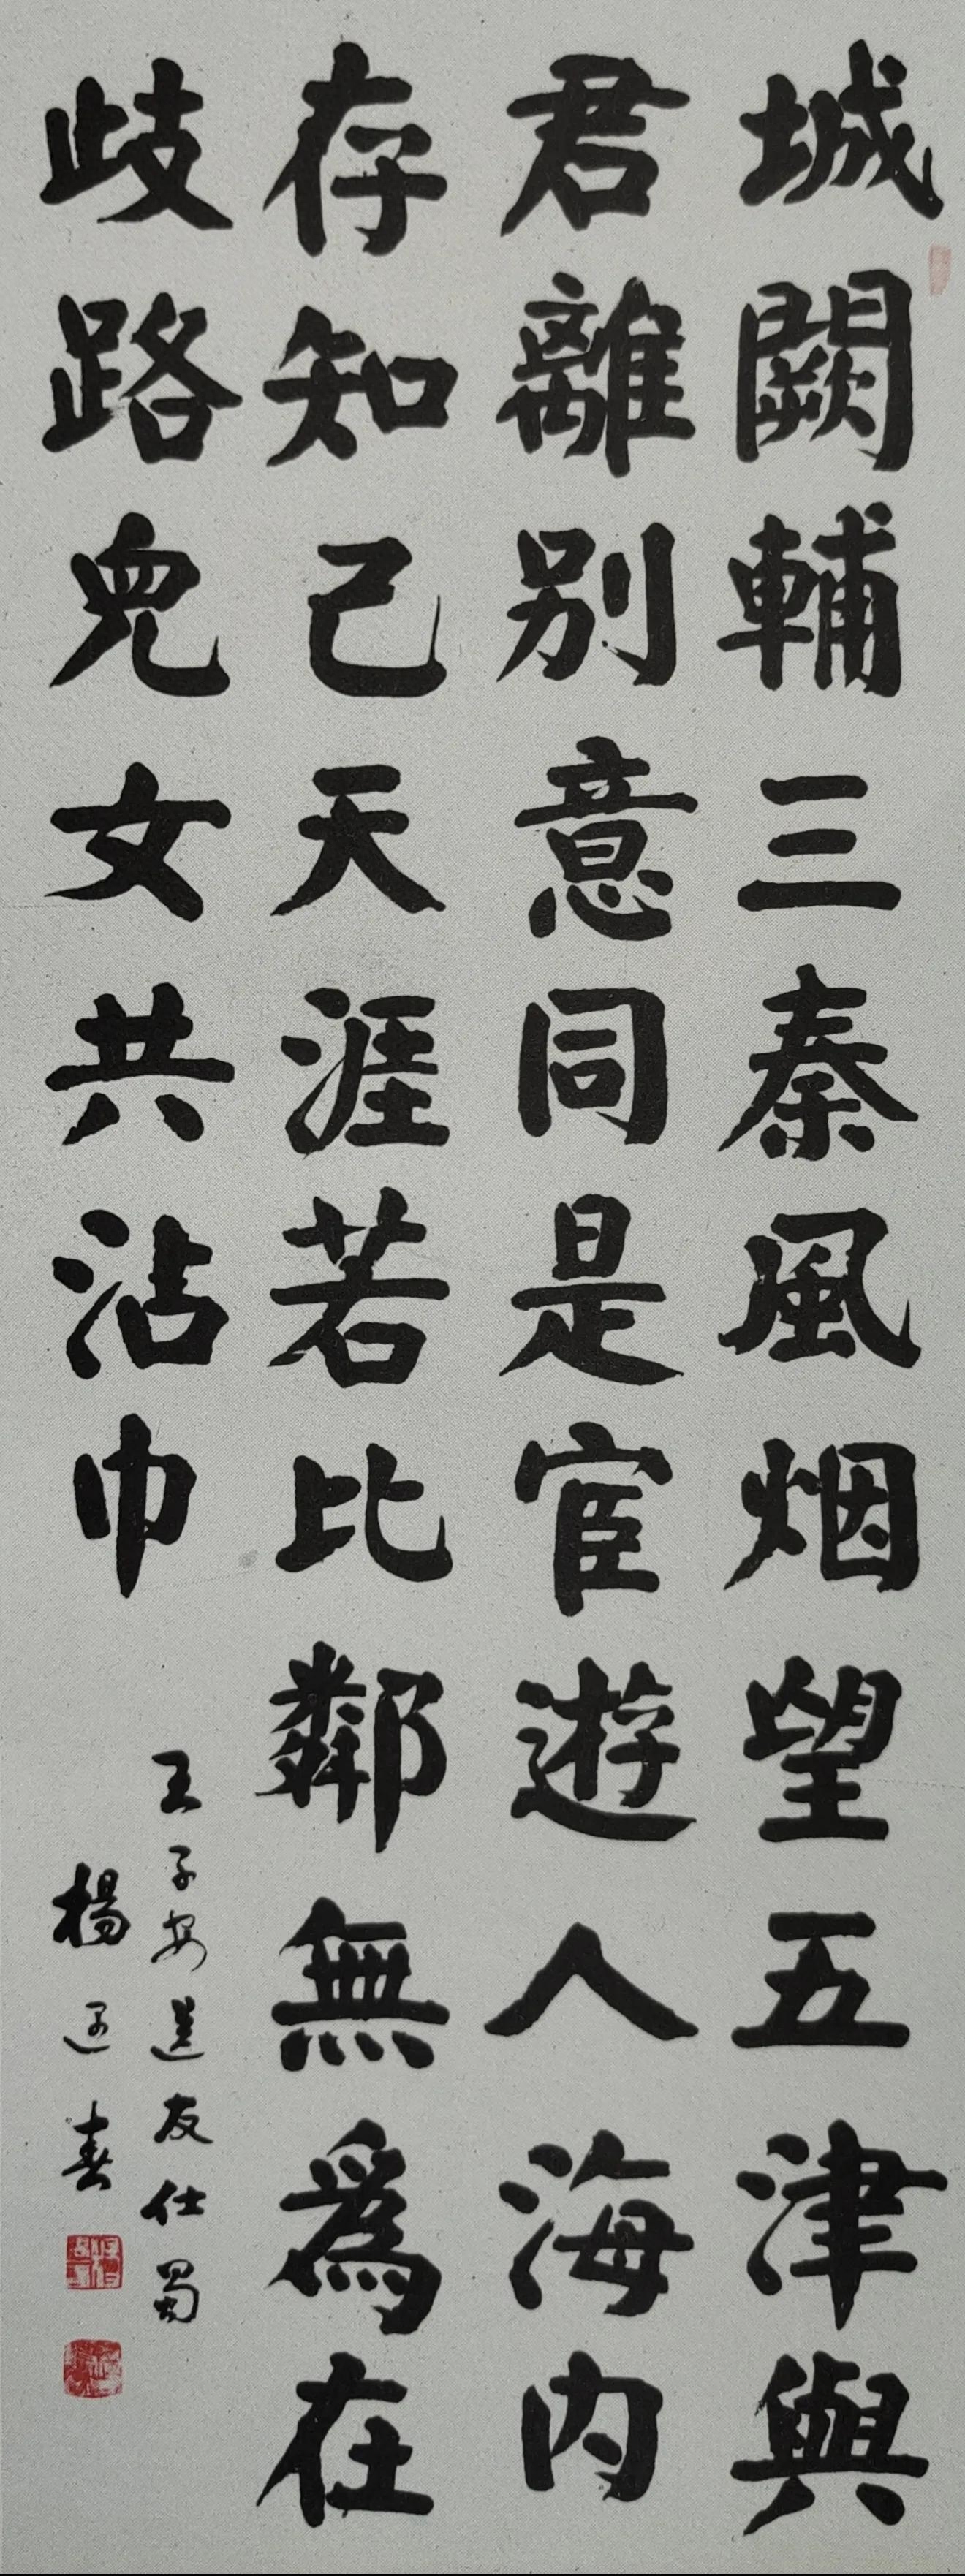 城闕輔三秦風烟望五津與
君離別意同是宦遊人海内
存知己天涯若比鄰無爲在
歧路兒女共沾巾
王子安送友仕蜀
楊 春